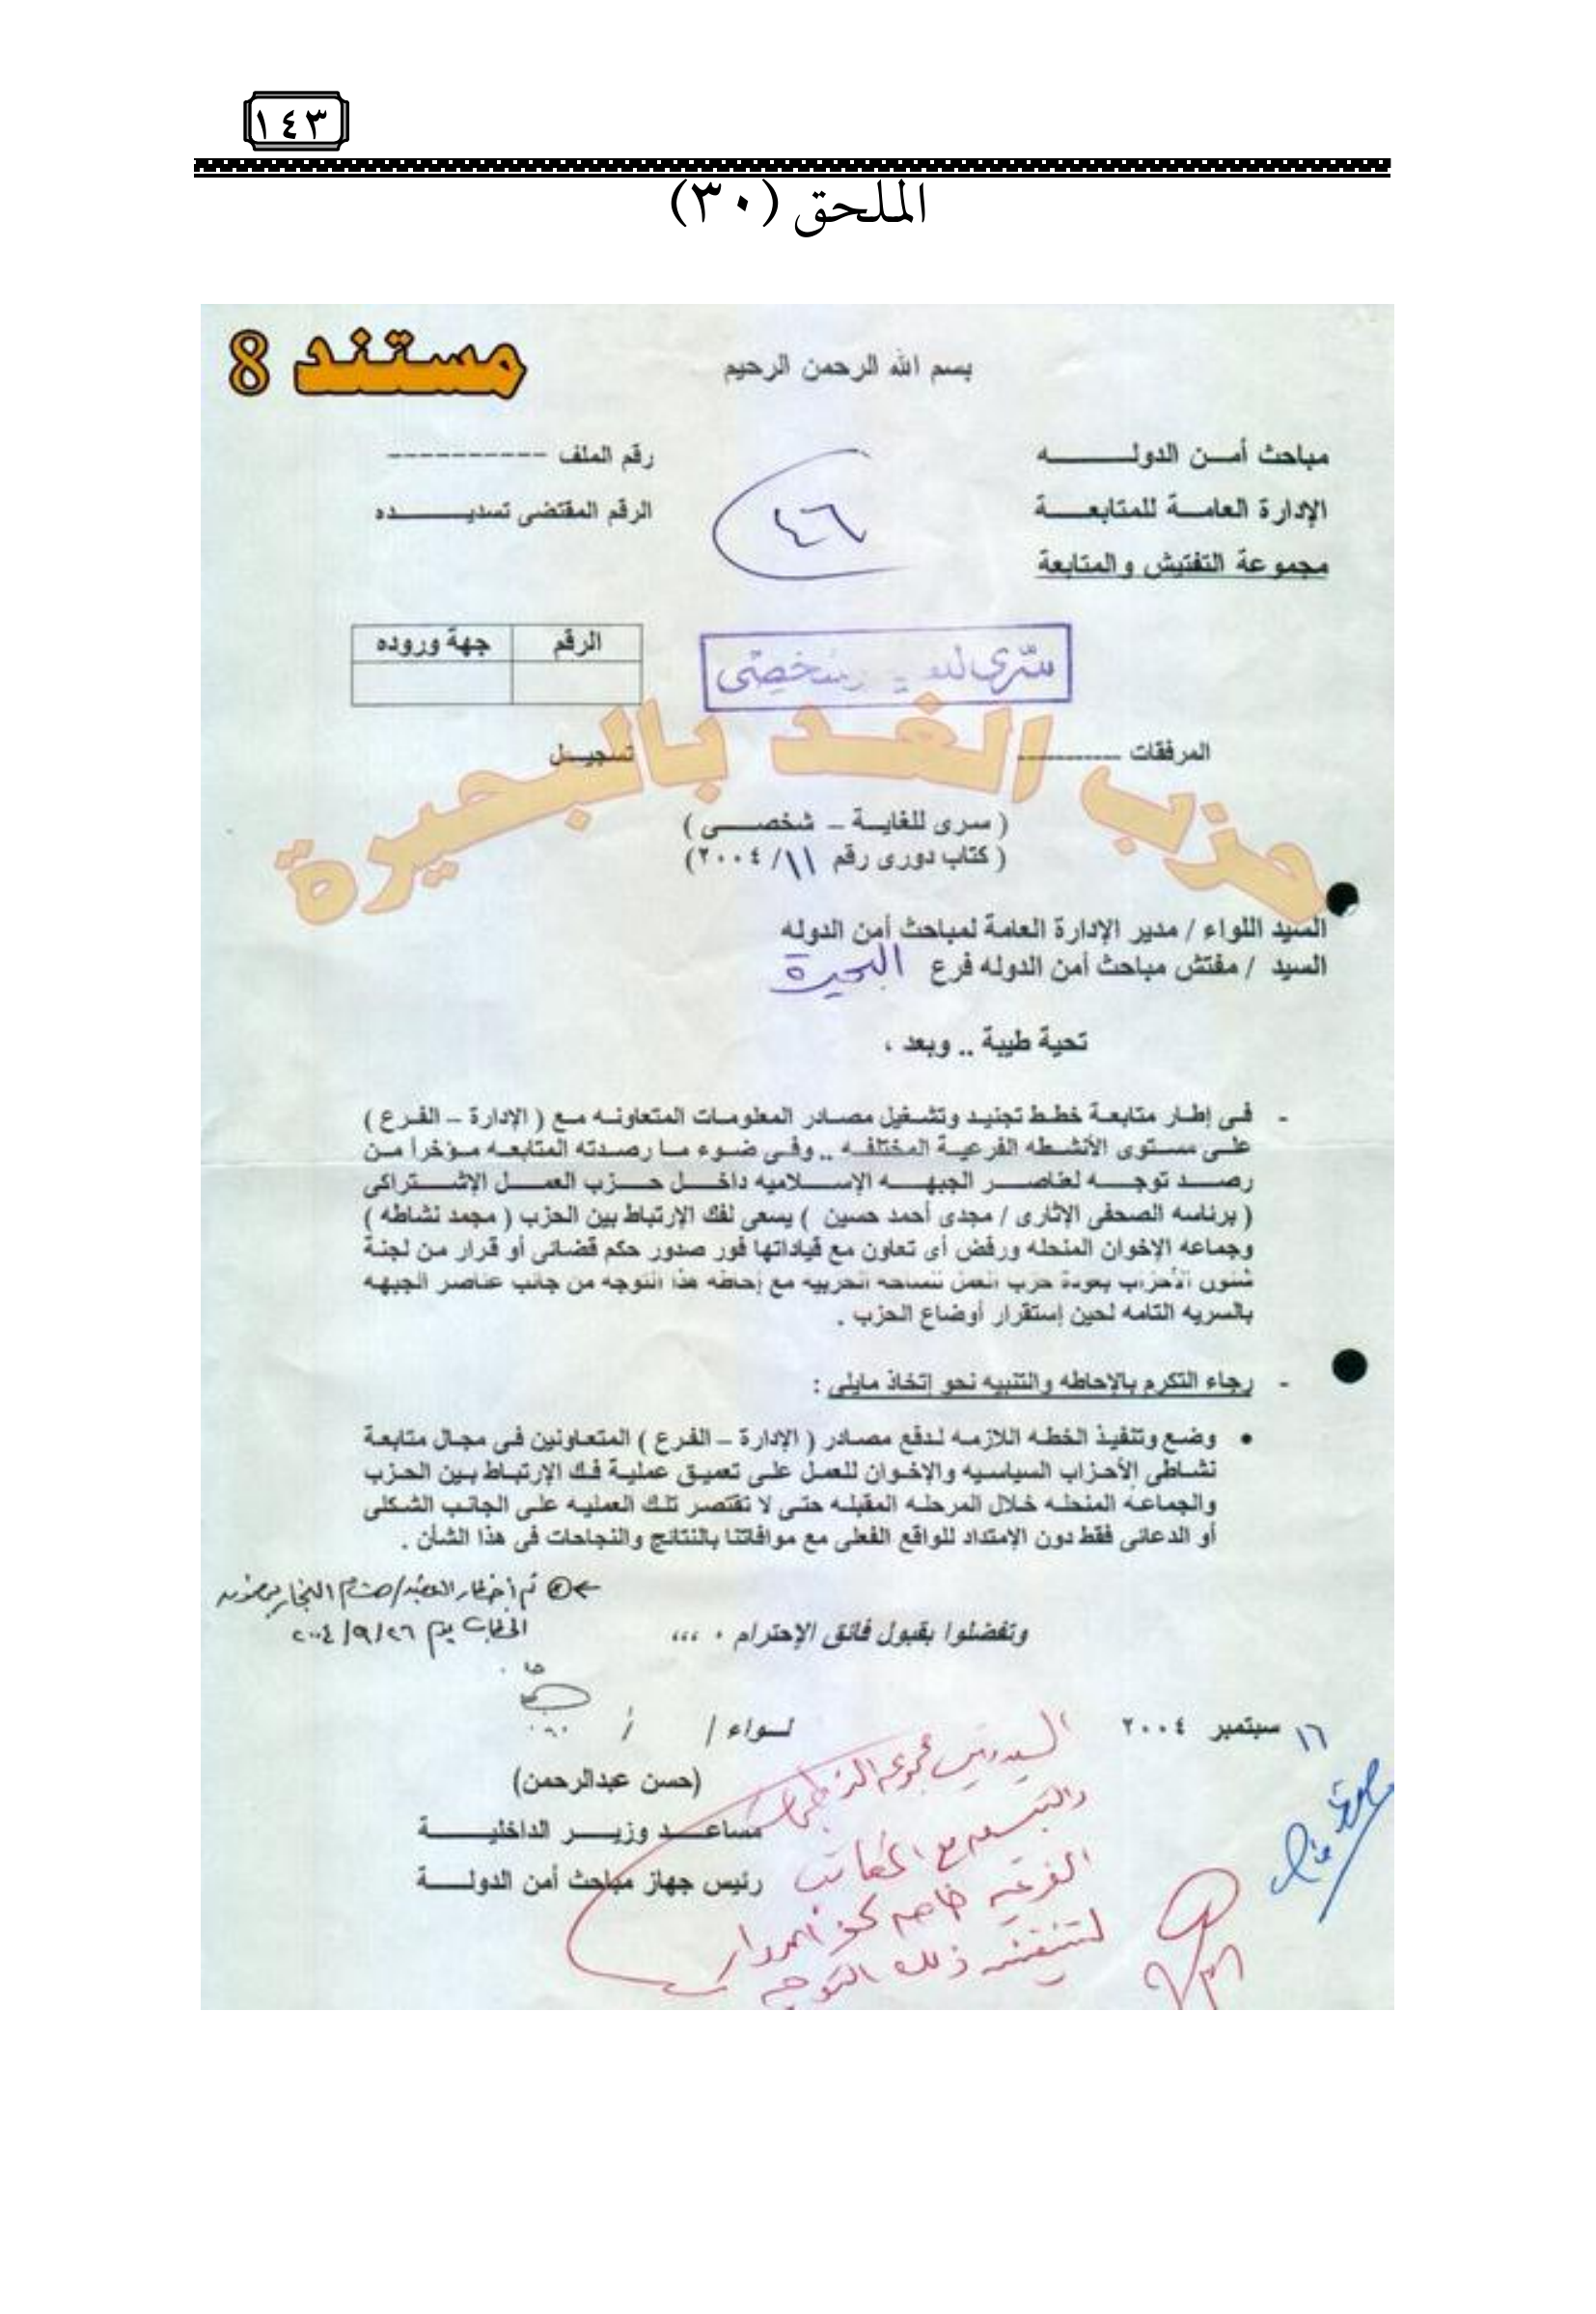 ١٤٣
الملحق (٣٠)
مستند 8
بسم الله الرحمن الرحيم
مباحث أمن الدوله
الإدارة العامة للمتابعة
مجموعة التفتيش والمتابعة
رقم الملف ----------
الرقم المقتضى تسديده
٤٦
الرقم جهة وروده
سرى شخصى
المرفقات ----------
تسجيل
حزب الغد بالبحيرة
( سرى للغاية – شخصى )
( كتاب دورى رقم ١١/ ٢٠٠٤)
السيد اللواء / مدير الإدارة العامة لمباحث أمن الدوله
السيد / مفتش مباحث أمن الدوله فرع البحيرة
تحية طيبة .. وبعد ،
- فى إطار متابعة خطط تجنيد وتشغيل مصادر المعلومات المتعاونه مع ( الإدارة – الفرع )
على مستوى الأنشطه الفرعية المختلفه .. وفى ضوء ما رصدته المتابعه مؤخراً من
رصد توجه لعناصر الجبهه الإسلاميه داخل حزب العمل الإشتراكى
( برئاسه الصحفى الإثارى / مجدى أحمد حسين ) يسعى لفك الإرتباط بين الحزب ( مجمد نشاطه )
وجماعه الإخوان المنحله ورفض أى تعاون مع قياداتها فور صدور حكم قضائى أو قرار من لجنة
شئون الأحزاب بعودة حزب العمل للساحه الحزبيه مع إحاطه هذا التوجه من جانب عناصر الجبهه
بالسريه التامه لحين إستقرار أوضاع الحزب .
- رجاء التكرم بالإحاطه والتنبيه نحو إتخاذ مايلى :
• وضع وتنفيذ الخطه اللازمه لدفع مصادر ( الإدارة – الفرع ) المتعاونين فى مجال متابعة
نشاطى الأحزاب السياسيه والإخوان للعمل على تعميق عملية فك الإرتباط بين الحزب
والجماعه المنحله خلال المرحله المقبله حتى لا تقتصر تلك العمليه على الجانب الشكلى
أو الدعائى فقط دون الإمتداد للواقع الفعلى مع موافاتنا بالنتائج والنجاحات فى هذا الشأن .
تم إخطار العقيد/ هشام النجار بمضمون
الخطاب يوم ٢٦/٩/٢٠٠٤
وتفضلوا بقبول فائق الإحترام ٠ ،،،
١٦ سبتمبر ٢٠٠٤
لـواء /
(حسن عبدالرحمن)
مساعد وزير الداخلية
رئيس جهاز مباحث أمن الدولة
السيد رئيس مجموعة
والتنسيق مع المكاتب
الفرعية خاصة
لتنفيذ ذلك التوجه